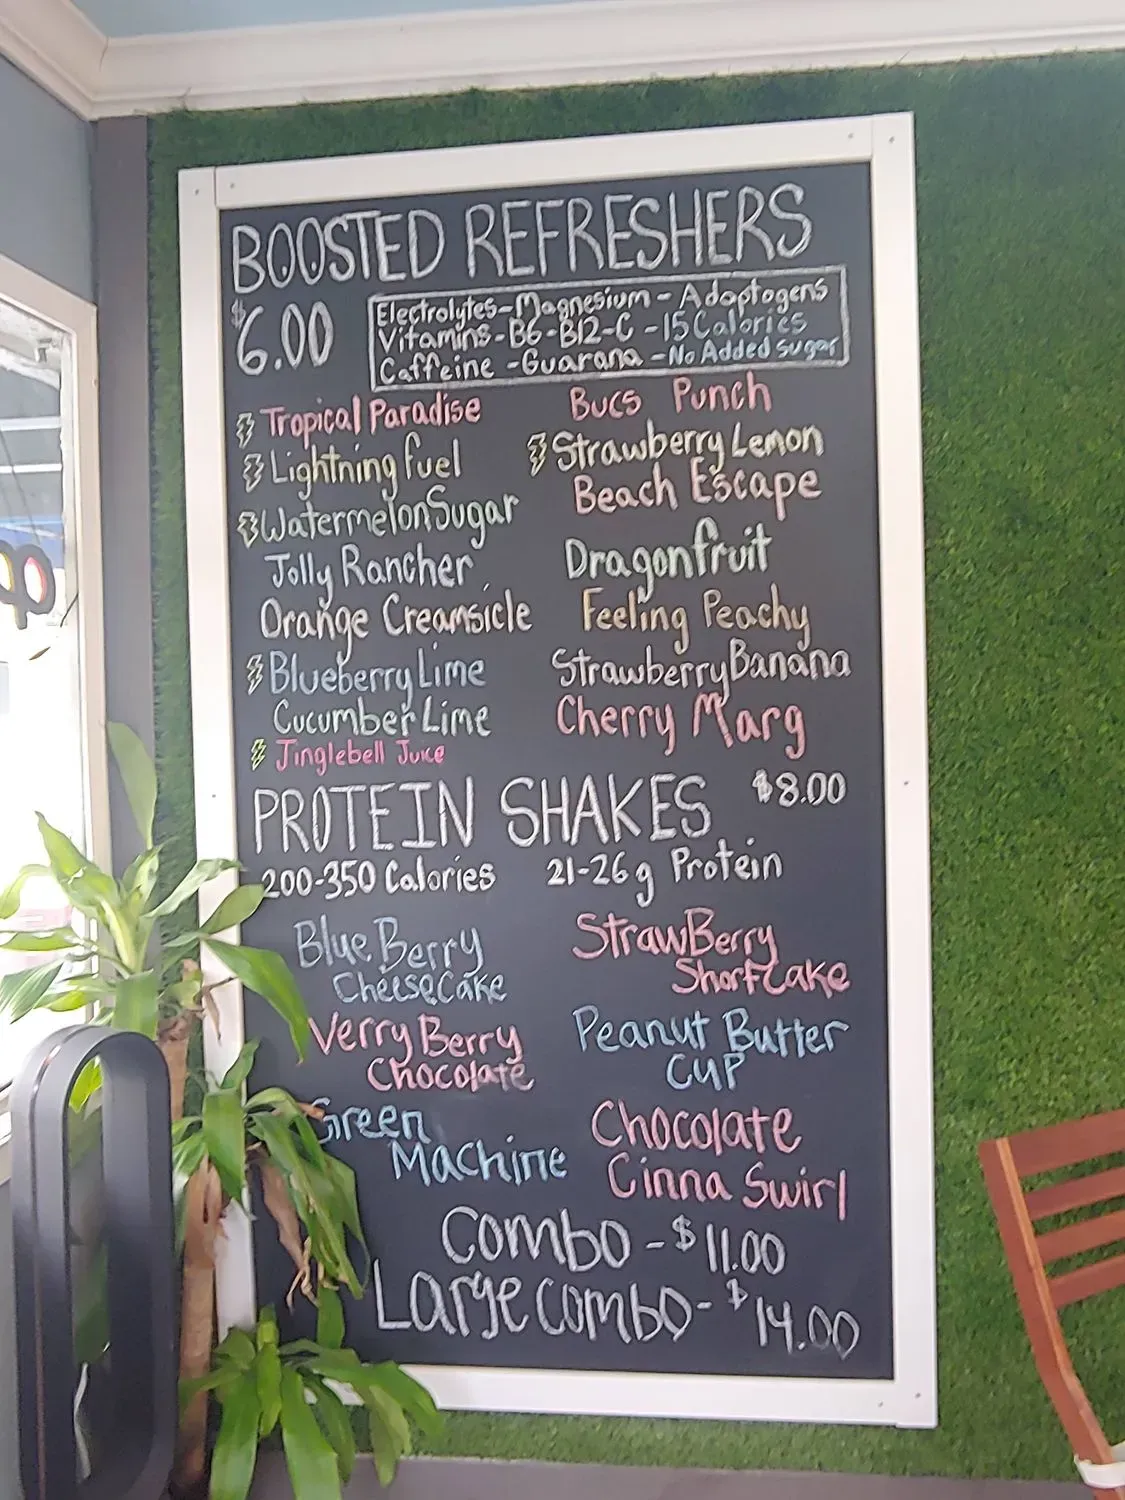 BOOSTED REFRESHERS
$6.00
Electrolytes-Magnesium-Adaptogens
Vitamins-B6-B12-C-15 Calories
Caffeine-Guarana-No Added sugar
Tropical Paradise
Lightning fuel
Watermelon Sugar
Jolly Rancher
Orange Creamsicle
Blueberry Lime
Cucumber Lime
Jinglebell Juice
Bucs Punch
Strawberry Lemon
Beach Escape
Dragonfruit
Feeling Peachy
Strawberry Banana
Cherry Marg
PROTEIN SHAKES $8.00
200-350 Calories 21-26g Protein
Blue Berry
CheeseCake
Verry Berry
Chocolate
Green
Machine
StrawBerry
Shortcake
Peanut Butter
CUP
Chocolate
Cinna Swirl
Combo - $11.00
Large combo - $14.00